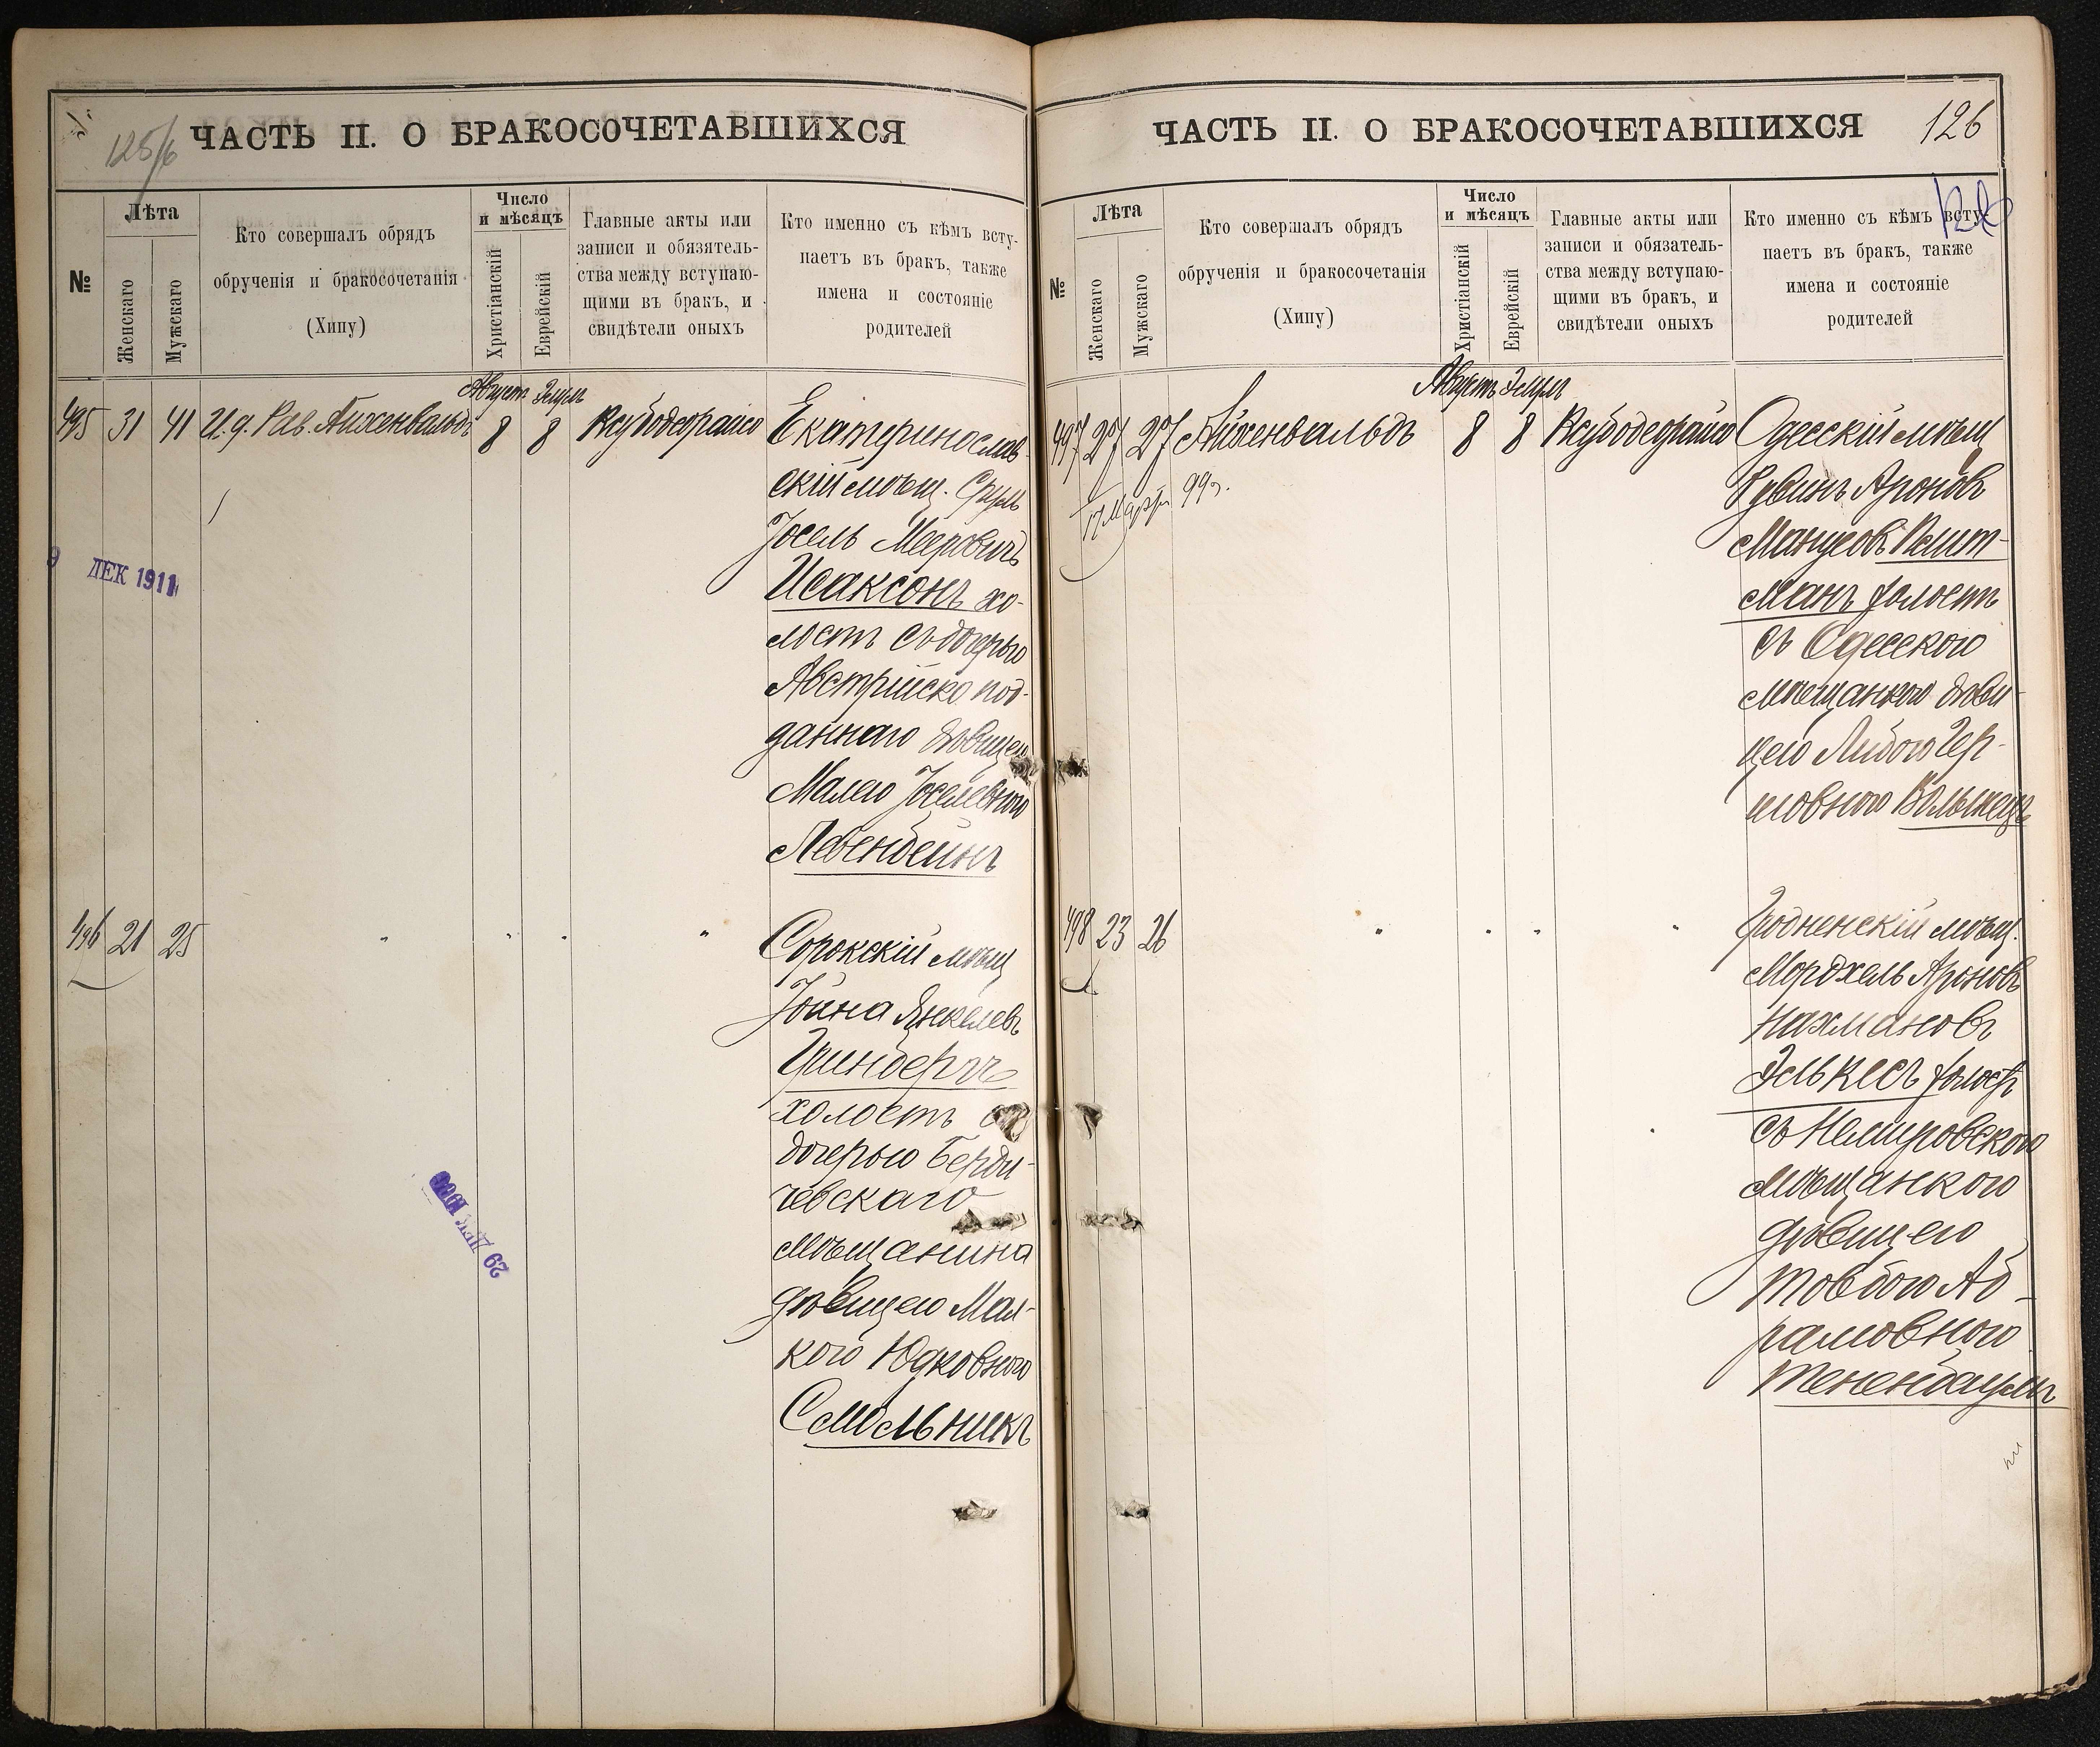 125/6
ЧАСТЬ II. О БРАКОСОЧЕТАВШИХСЯ
№
Лѣта
Женскаго
Мужскаго
Кто совершалъ обрядъ
обрученія и бракосочетанія
(Хипу)
Число
и мѣсяцъ
Христіанскій
Еврейскій
Главные акты или
записи и обязатель-
ства между вступаю-
щими въ бракъ, и
свидѣтели оныхъ
Кто именно съ кѣмъ всту-
паетъ въ бракъ, также
имена и состояніе
родителей
Августъ Элулъ
495 31 41 И. д. Рав. Айхенвальдъ 8 8 Ксубодеорайсо Екатеринослав-
скій мѣщ. Сруль
Іосель Меировичъ
Исаксонъ хо-
лостъ съ дочерью
Австрійско под-
даннаго дѣвицею
Малею Іоселевною
Левенбейнъ
9 ДЕК 1911
496 21 25 " " " " Сорокскій мѣщ
Іойна Янкелевъ
холостъ съ
дочерью Берди-
чевскаго
мѣщанина
дѣвицею Мал-
кою Юдковною
Смольникъ
ЧАСТЬ II. О БРАКОСОЧЕТАВШИХСЯ
126
№
Лѣта
Женскаго
Мужскаго
Кто совершалъ обрядъ
обрученія и бракосочетанія
(Хипу)
Число
и мѣсяцъ
Христіанскій
Еврейскій
Главные акты или
записи и обязатель-
ства между вступаю-
щими въ бракъ, и
свидѣтели оныхъ
Кто именно съ кѣмъ всту-
паетъ въ бракъ, также
имена и состояніе
родителей
Августъ Элулъ
497 27 27 Айхенвальдъ 8 8 Ксубодеорайсо Одесскій мѣщ
17 Марта 99 г.
Рувинъ Ароновъ
Манусовъ
манъ холостъ
съ Одесскою
мѣщанкою дѣви-
цею Либою Гер-
шовною Волынецъ
498 23 26 " " " " Гродненскій мѣщ.
Мордхель Ароновъ
Нахмановъ
Элькесъ холостъ
съ Немировскою
мѣщанкою
дѣвицею
Товбою Аб-
рамовною
Тененбаумъ